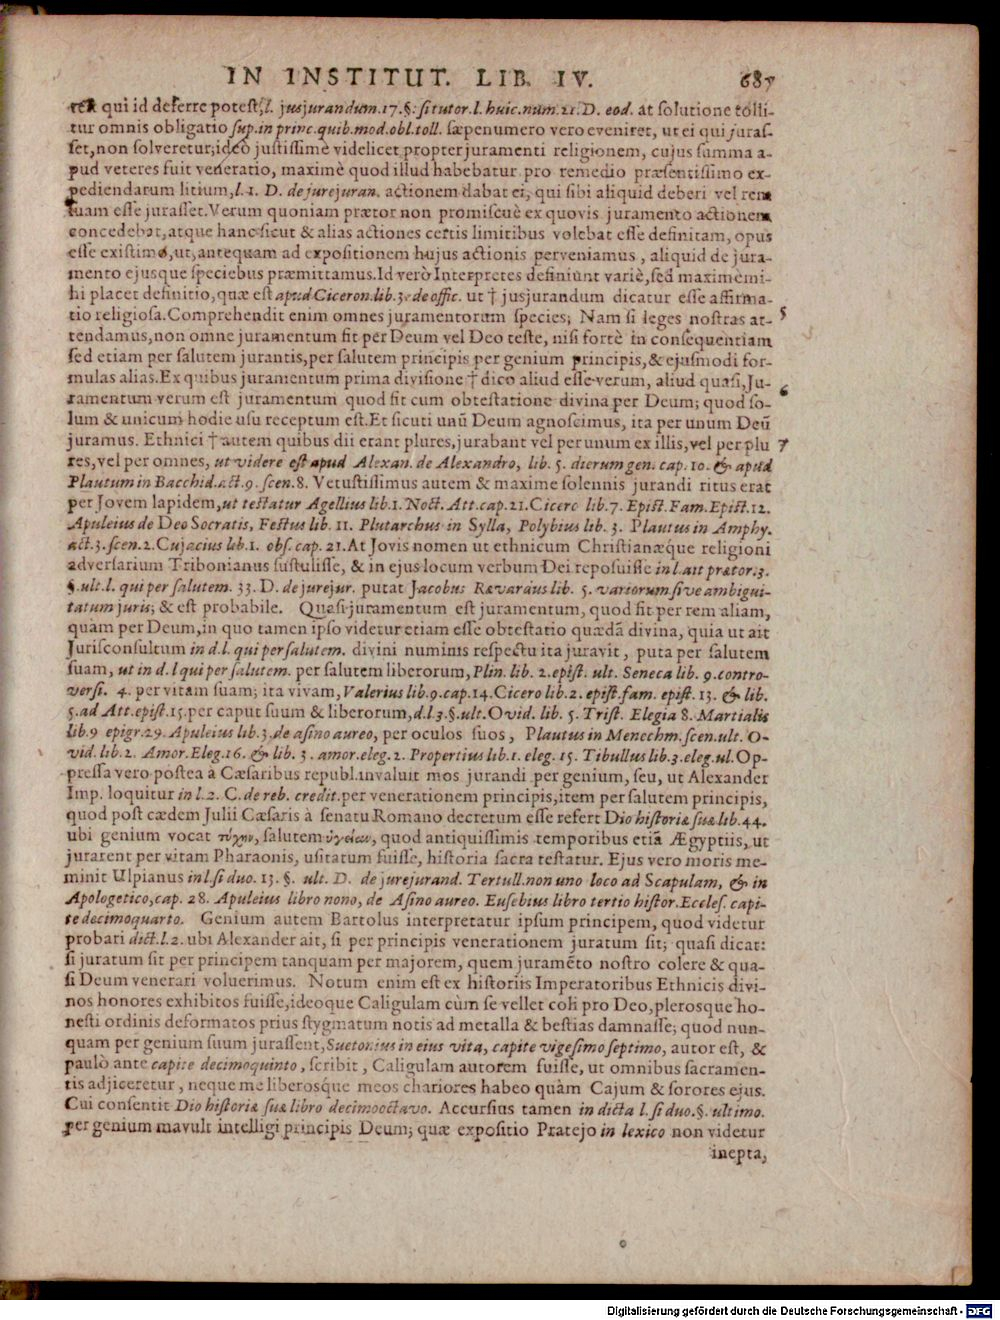 IN INSTITUT. LIB. IV. 687
qui id deferre potest, l. jusjurandum. 17. §. si tutor. l. huic. num. 21. D. eod. at solutione tolli-
tur omnis obligatio sup. in princ. quib. mod. obl. toll. sæpenumero vero eveniret, ut ei qui juras-
set, non solveretur; ideò justissimè videlicet propter juramenti religionem, cujus summa a-
pud veteres fuit veneratio, maximè quod illud habebatur pro remedio præsentissimo ex-
pediendarum litium, l. 1. D. de jurejuran. actionem dabat ei, qui sibi aliquid deberi vel rem
suam esse jurasset. Verum quoniam prætor non promiscuè ex quovis juramento actionem
concedebat, atque hanc sicut & alias actiones certis limitibus volebat esse definitam, opus
esse existimo, ut, antequam ad expositionem hujus actionis perveniamus, aliquid de jura-
mento ejusque speciebus præmittamus. Id verò Interpretes definiunt variè, sed maximè mi-
hi placet definitio, quæ est apud Ciceron. lib. 3. de offic. ut † jusjurandum dicatur esse affirma-
tio religiosa. Comprehendit enim omnes juramentorum species; Nam si leges nostras at- 5
tendamus, non omne juramentum fit per Deum vel Deo teste, nisi fortè in consequentiam
sed etiam per salutem jurantis, per salutem principis per genium principis, & ejusmodi for-
mulas alias. Ex quibus juramentum prima divisione † dico aliud esse verum, aliud quasi, Ju- 6
ramentum verum est juramentum quod fit cum obtestatione divina per Deum; quod so-
lum & unicum hodie usu receptum est. Et sicuti unũ Deum agnoscimus, ita per unum Deũ
juramus. Ethnici † autem quibus dii erant plures, jurabant vel per unum ex illis, vel per plu 7
res, vel per omnes, ut videre est apud Alexan. de Alexandro, lib. 5. dierum gen. cap. 10. & apud
Plautum in Bacchid. act. 9. scen. 8. Vetustissimus autem & maxime solennis jurandi ritus erat
per Jovem lapidem, ut testatur Agellius lib. 1. Noct. Att. cap. 21. Cicero lib. 7. Epist. Fam. Epist. 12.
Apuleius de Deo Socratis, Festus lib. 11. Plutarchus in Sylla, Polybius lib. 3. Plautus in Amphy.
act. 3. scen. 2. Cujacius lib. 1. obs. cap. 21. At Jovis nomen ut ethnicum Christianæque religioni
adversarium Tribonianus sustulisse, & in ejus locum verbum Dei reposuisse in l. ait prætor. 3.
§. ult. l. qui per salutem. 33. D. de jurejur. putat Jacobus Rævardus lib. 5. variorum sive ambigui-
tatum juris; & est probabile. Quasi juramentum est juramentum, quod fit per rem aliam,
quàm per Deum, in quo tamen ipso videtur etiam esse obtestatio quædã divina, quia ut ait
Jurisconsultum in d. l. qui per salutem. divini numinis respectu ita juravit, puta per salutem
suam, ut in d. l qui per salutem. per salutem liberorum, Plin. lib. 2. epist. ult. Seneca lib. 9. contro-
versi. 4. per vitam suam; ita vivam, Valerius lib. 9. cap. 14. Cicero lib. 2. epist. fam. epist. 13. & lib.
5. ad Att. epist. 15. per caput suum & liberorum, d. l. 3. §. ult. Ovid. lib. 5. Trist. Elegia 8. Martialis
lib. 9 epigr. 29. Apuleius lib. 3. de asino aureo, per oculos suos, Plautus in Menechm. scen. ult. O-
vid. lib. 2. Amor. Eleg. 16. & lib. 3. amor. eleg. 2. Propertius lib. 1. eleg. 15. Tibullus lib. 3. eleg. ul. Op-
pressa vero postea à Cæsaribus republ. invaluit mos jurandi per genium, seu, ut Alexander
Imp. loquitur in l. 2. C. de reb. credit. per venerationem principis, item per salutem principis,
quod post cædem Julii Cæsaris à senatu Romano decretum esse refert Dio historiæ suæ lib. 44.
ubi genium vocat τύχην, salutem ὑγείαν, quod antiquissimis temporibus etiã Ægyptiis, ut
jurarent per vitam Pharaonis, usitatum fuisse, historia sacra testatur. Ejus vero moris me-
minit Ulpianus in l. si duo. 13. §. ult. D. de jurejurand. Tertull. non uno loco ad Scapulam, & in
Apologetico, cap. 28. Apuleius libro nono, de Asino aureo. Eusebius libro tertio histor. Eccles. capi-
te decimoquarto. Genium autem Bartolus interpretatur ipsum principem, quod videtur
probari dict. l. 2. ubi Alexander ait, si per principis venerationem juratum sit; quasi dicat:
si juratum sit per principem tanquam per majorem, quem juramẽto nostro colere & qua-
si Deum venerari voluerimus. Notum enim est ex historiis Imperatoribus Ethnicis divi-
nos honores exhibitos fuisse, ideoque Caligulam cùm se vellet coli pro Deo, plerosque ho-
nesti ordinis deformatos prius stygmatum notis ad metalla & bestias damnasse; quod nun-
quam per genium suum jurassent, Suetonius in eius vita, capite vigesimo septimo, autor est, &
paulò ante capite decimoquinto, scribit, Caligulam autorem fuisse, ut omnibus sacramen-
tis adjiceretur, neque me liberosque meos chariores habeo quàm Cajum & sorores ejus.
Cui consentit Dio historiæ suæ libro decimooctavo. Accursius tamen in dicta l. si duo. §. ultimo.
per genium mavult intelligi principis Deum; quæ expositio Pratejo in lexico non videtur
inepta,
Digitalisierung gefördert durch die Deutsche Forschungsgemeinschaft - DFG